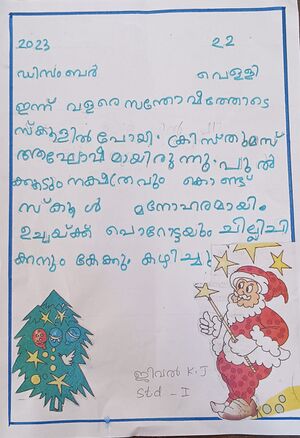 2023 22
ഡിസംബർ വെള്ളി
ഇന്ന് വളരെ സന്തോഷത്തോടെ
സ്കൂളിൽ പോയി. ക്രിസ്തുമസ്
ആഘോഷമായിരുന്നു. പുൽ
ക്കൂടും നക്ഷത്രവും കൊണ്ട്
സ്കൂൾ മനോഹരമായി.
ഉച്ചയ്ക്ക് പൊറോട്ടയും ചില്ലിചി
ക്കനും കേക്കും കഴിച്ചു
ജിവൽ K.J
Std - I